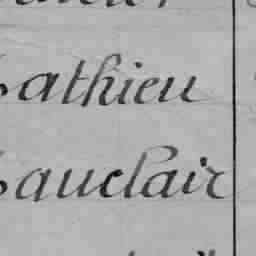 Mathieu
Mauclair